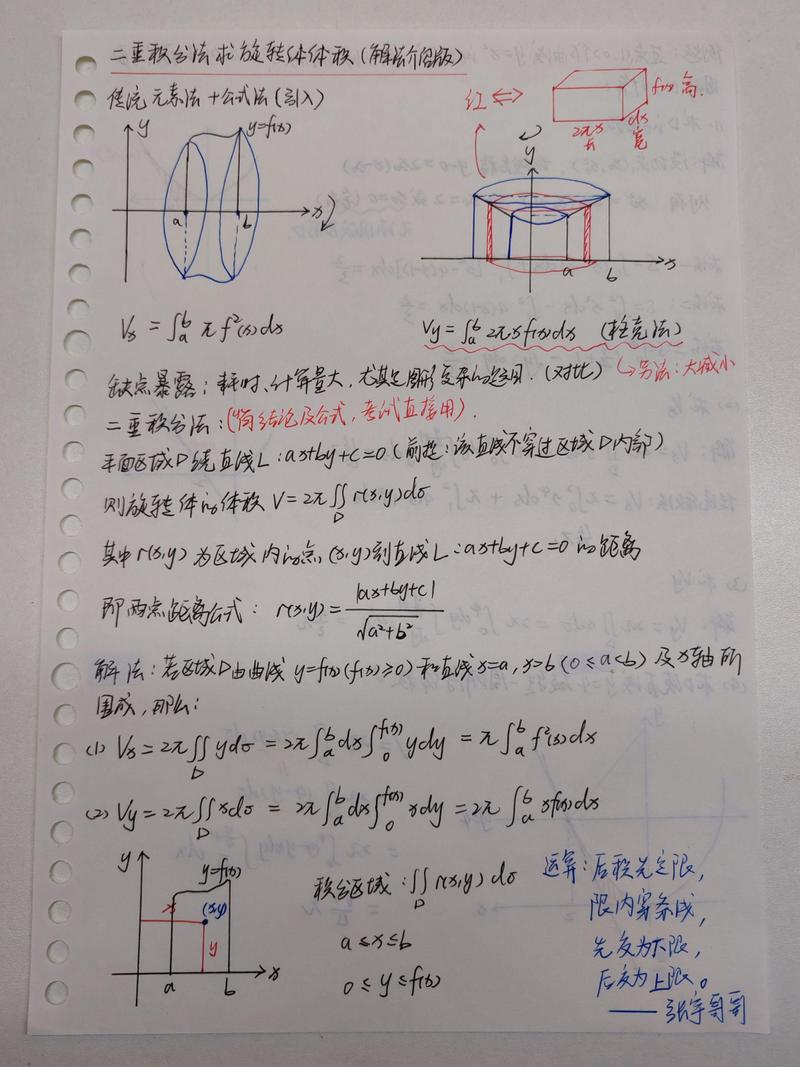 二重积分法求旋转体体积(解法介绍版)
传统元素法+公式法(引入)
红 ⇔
f(x) 高.
dx 宽
2πx 长
y y=f(x) a b x
y a b x
Vx = ∫_a^b π f²(x)dx
Vy = ∫_a^b 2πx f(x)dx (柱壳法)
缺点暴露:耗时、计算量大,尤其是图形复杂的运用.(对比)(→另法:大减小
二重积分法:(简结论及公式,考试直接用).
平面区域D绕直线L:ax+by+c=0(前提:该直线不穿过区域D内部)
则旋转体的体积 V=2π∬_D r(x,y)dσ
其中r(x,y)为区域内的点(x,y)到直线L:ax+by+c=0的距离
即两点距离公式: r(x,y)= |ax+by+c| / √(a²+b²)
解法:若区域D由曲线 y=f(x)(f(x)≥0)和直线x=a,x=b(0≤a<b)及x轴所
围成,那么:
(1) Vx=2π∬_D ydσ = 2π∫_a^b dx∫_0^{f(x)} ydy = π∫_a^b f²(x)dx
(2) Vy=2π∬_D xdσ = 2π∫_a^b dx∫_0^{f(x)} xdy = 2π∫_a^b xf(x)dx
y y=f(x) x (x,y) y a b x
积分区域:∬_D r(x,y)dσ
a≤x≤b
0≤y≤f(x)
运算:后积先定限,
限内穿条线,
先交为下限,
后交为上限。
——张宇哥哥